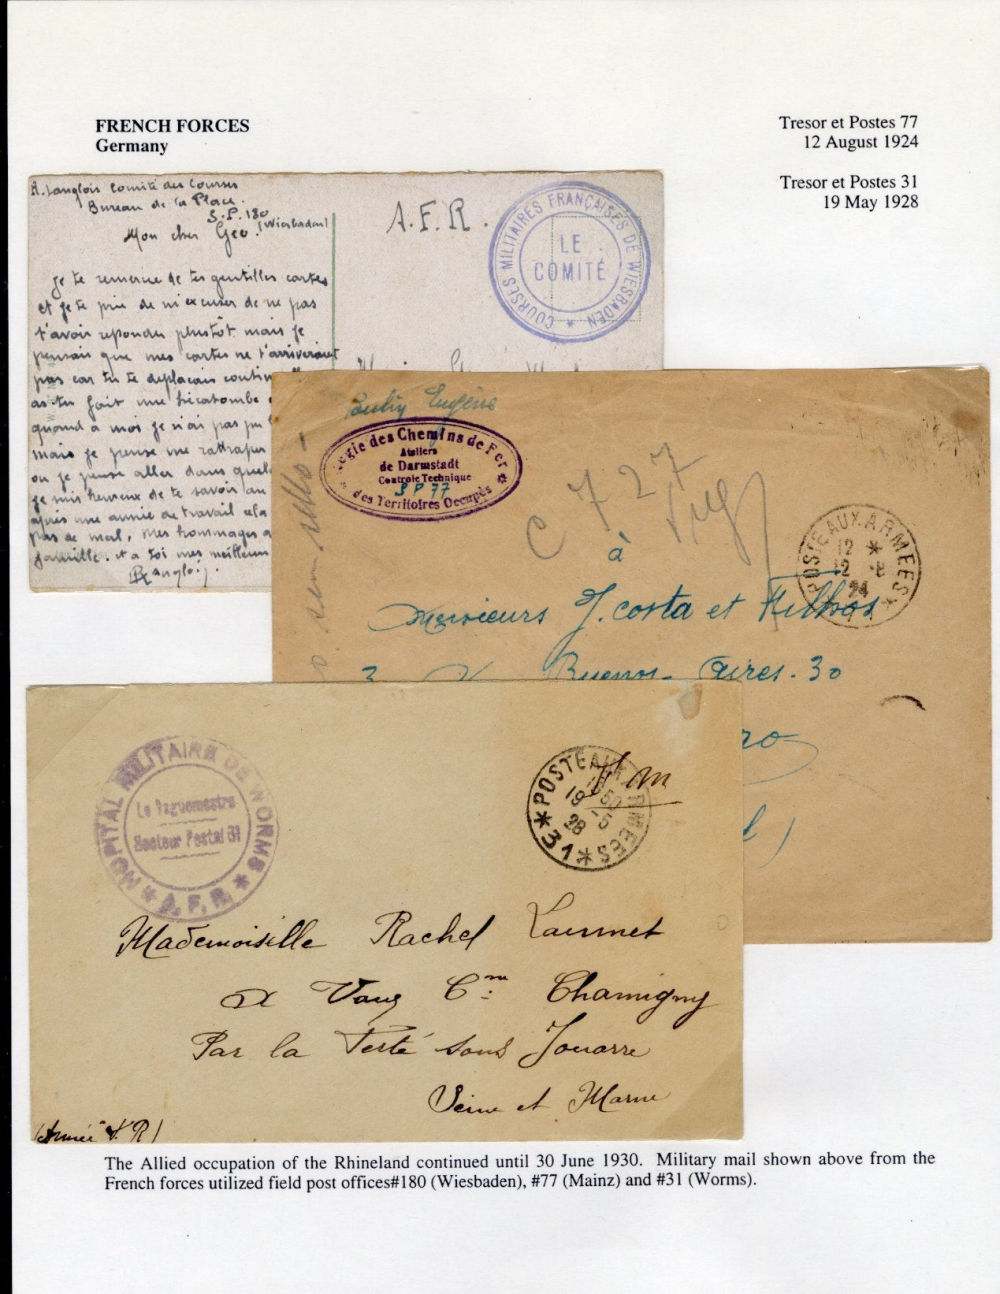 FRENCH FORCES
Germany
Tresor et Postes 77
12 August 1924
Tresor et Postes 31
19 May 1928
A. Langlois Comité des Courses
Bureau de la Place.
S.P. 180
(Wiesbaden)
Mon cher Geo.
Je te remercie de tes gentilles cartes
et je te prie de m'excuser de ne pas
t'avoir repondu plustôt mais je
pensais que mes cartes ne t'arriveraient
pas car tu te deplacais contin
as-tu fait une hécatombe
quand a moi je n'ai pas pu
mais je pense me rattraper
ou je pense aller dans quel
je suis heureux de te savoir au
après une année de travail
pas de mal, mes hommages a
famille. et a toi mes meilleurs
Langlois
A.F.R.
COURSES MILITAIRES FRANÇAISES DE WIESBADEN *
LE
COMITÉ
Eugène
Régie des Chemins de Fer
Ateliers
de Darmstadt
Controle Technique
SP 77
des Territoires Occupés
C 727
à
POSTE AUX ARMEES *
12 *
12 -8
24
Messieurs J. Costa et Filhos
3 Buenos-Aires. 30
ro
d)
HOPITAL MILITAIRE DE WORMS
Le Vaguemestre
Secteur Postal 31
* A.F.R. *
F m
* POSTE AUX ARMEES *
19 -5
28
31
Mademoiselle Rachel
a Vaux Cne Chamigny
Par la Ferté sous Jouarre
Seine et Marne
(Armée F.R)
The Allied occupation of the Rhineland continued until 30 June 1930. Military mail shown above from the
French forces utilized field post offices#180 (Wiesbaden), #77 (Mainz) and #31 (Worms).